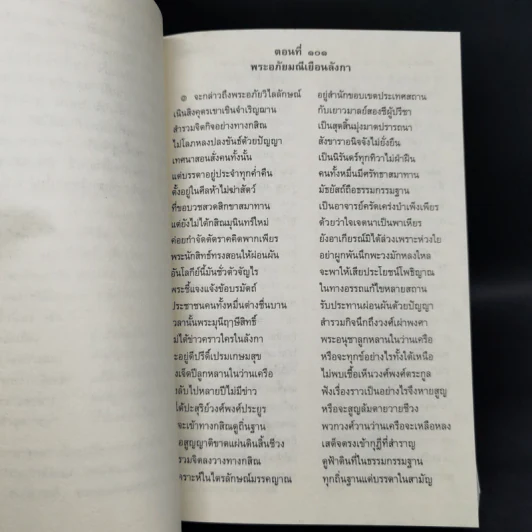 ตอนที่ ๑๐๑
พระอภัยมณีเยือนลังกา
๏ จะกล่าวถึงพระอภัยวิไลลักษณ์ อยู่สำนักขอบเขตประเทศสถาน
เนินสิงคุตรเขาเขินจำเริญฌาน กับเยาวมาลย์สองชีผู้ปรีชา
สำรวมจิตกิจอย่างทางกสิณ เป็นสุดสิ้นมุ่งมาดปรารถนา
ไม่โลภหลงปลงขันธ์ด้วยปัญญา สังขารายนิจจังไม่ยั่งยืน
เทศนาสอนสั่งคนทั้งนั้น เป็นนิรันดร์ทุกทิวาไม่ฝ่าฝืน
แต่บรรดาอยู่ประจำทุกค่ำคืน คนทั้งหมื่นมีศรัทธาสมาทาน
ตั้งอยู่ในศีลห้าไม่ฆ่าสัตว์ มัธยัสถ์ถือธรรมกรรมฐาน
ที่ชอบวชสวดสิกขาสมาทาน เป็นอาจารย์ครัดเคร่งบำเพ็งเพียร
แต่ยังไม่ได้กสิณมุนินทร์ใหม่ ด้วยว่าใจเจตนาเป็นพาเหียร
ค่อยกำจัดตัดราคคิดพากเพียร ยังอาเกียรณ์มิได้ล่วงเพราะห่วงใย
พระนักสิทธ์ทรงสอนให้ผ่อนผัน อย่าผูกพันนึกพะวงมักหลงใหล
อันโลกีย์นี้มันชั่วตัวจัญไร จะพาให้เสียประโยชน์โพธิญาณ
พระชี้แจงแจ้งข้อบรมัตถ์ ในทางอรรถแก้ไขหลายสถาน
ประชาชนคนทั้งหมื่นต่างชื่นบาน รับประทานผ่อนผันด้วยปัญญา
วลานั้นพระมุนีฤๅษีสิทธิ์ สำรวมกิจนึกถึงวงศ์เผ่าพงศา
ไม่ได้ข่าวคราวใครในลังกา พระอนุชาลูกหลานในว่านเครือ
ะอยู่ดีปรีดิ์เปรมเกษมสุข หรือจะทุกข์อย่างไรทั้งใต้เหนือ
งเจ็ดปีลูกหลานในว่านเครือ ไม่พบเชื้อเห็นวงศ์พงศ์ตระกูล
ลับไปหลายปีไม่มีข่าว ฟังเรื่องราวเป็นอย่างไรจึงหายสูญ
ได้ปะสุริย์วงศ์พงศ์ประยูร หรือจะสูญล้มตายวายชีวง
จะเข้าทางกสิณดูถิ่นฐาน พวกวงศ์วานว่านเครือจะเหลือหลง
อสูญญาติขาดแผ่นดินสิ้นชีวง เสด็จตรงเข้ากุฎีที่สำราญ
รวมจิตลงวางทางกสิณ ดูฟ้าดินที่ในธรรมกรรมฐาน
คราะห์ในไตรลักษณ์มรรคญาณ ทุกถิ่นฐานแต่บรรดาในสามัญ